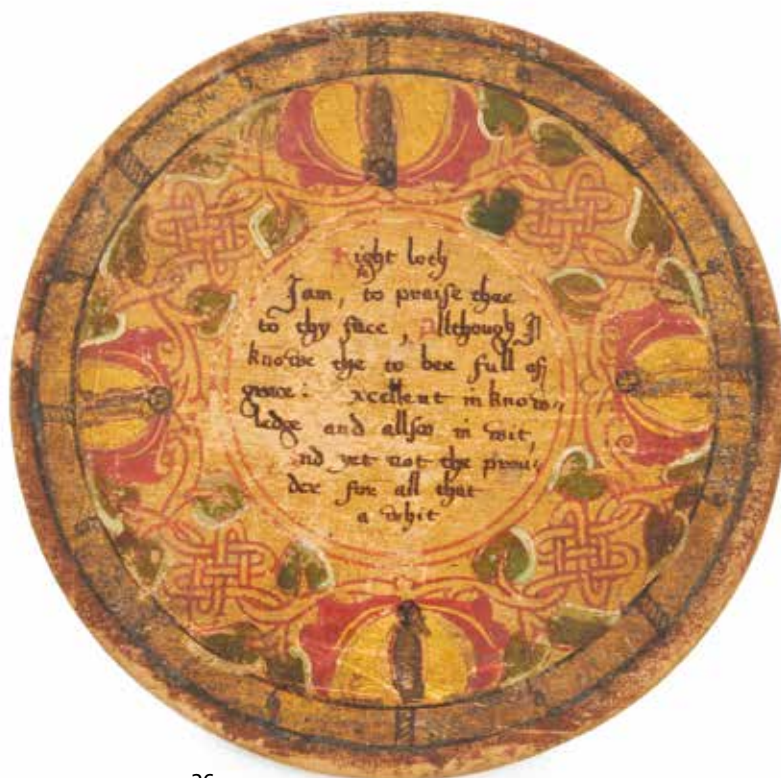 Right loth
I am, to praise thee
to thy face, Although I
knowe the to bee full of
grace: xcellent in know„
ledge and allso in wit,
nd yet not the prou„
der for all that
a whit
26